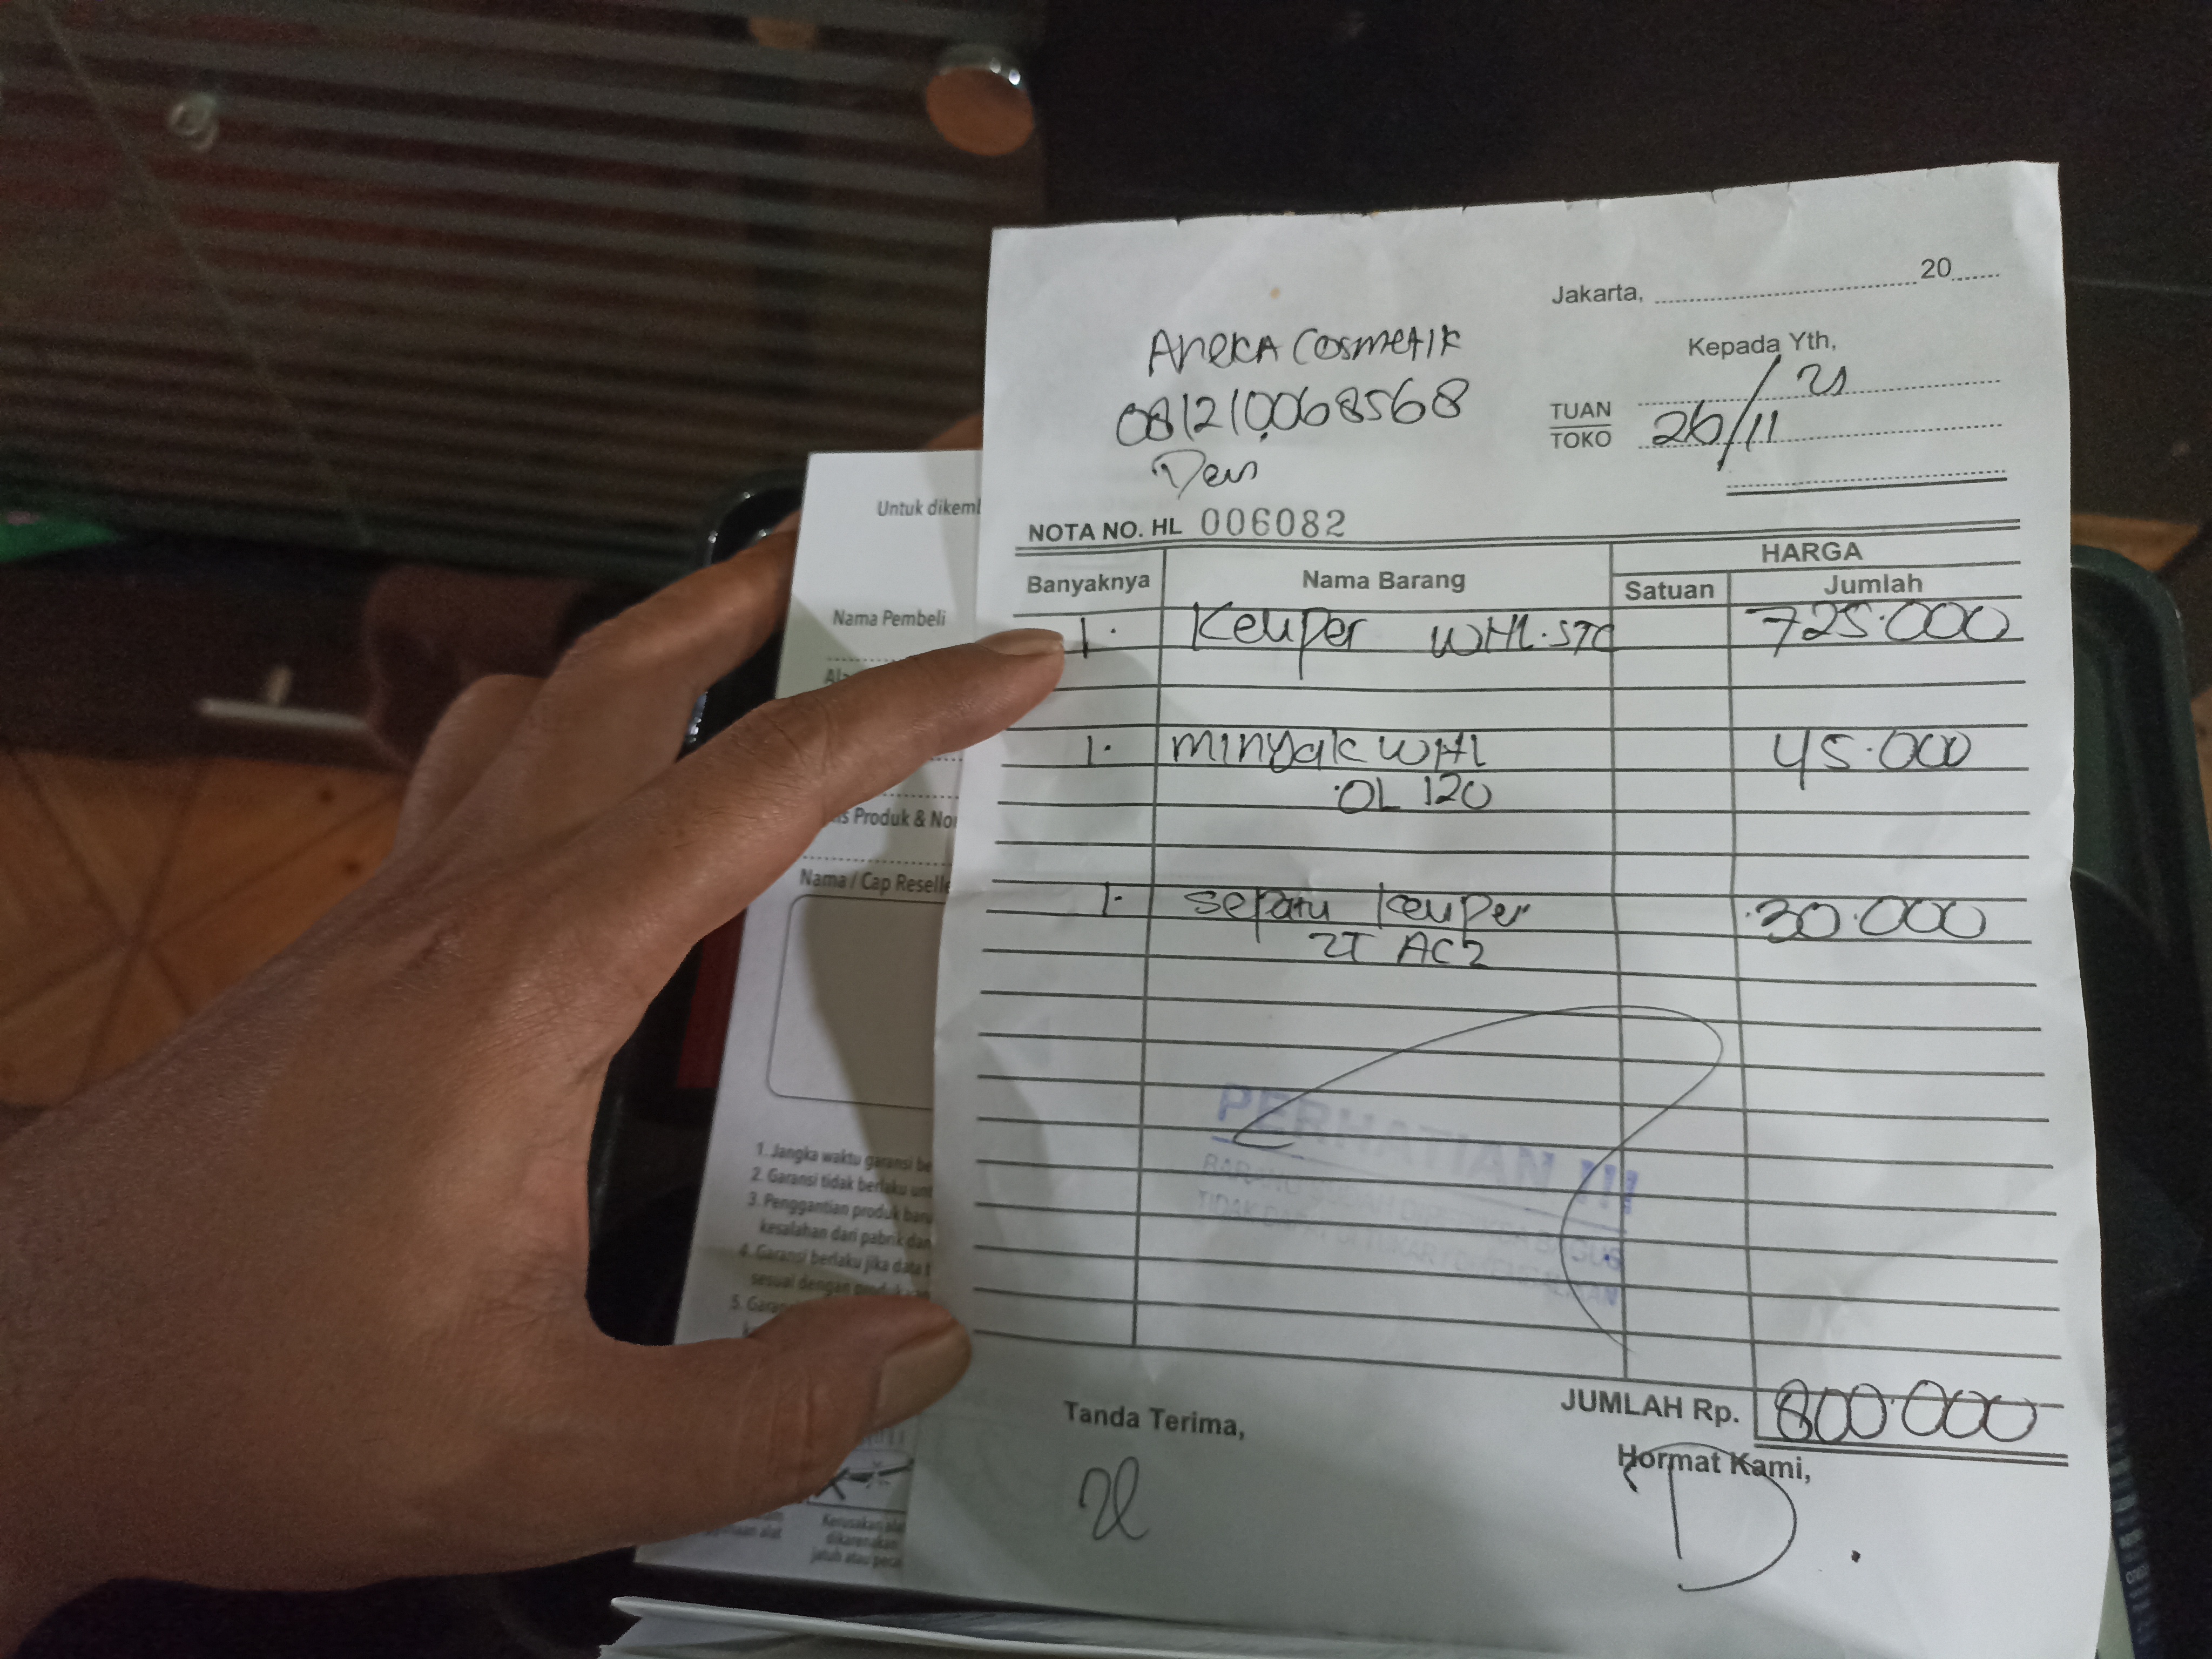 Jakarta, 20
Aneka Cosmetik
081210068568
Den
Kepada Yth,
TUAN
TOKO
26/11/21
NOTA NO. HL 006082
Banyaknya Nama Barang HARGA
Satuan Jumlah
1. Keuper WHL.STC 725.000
1. Minyak WHL 45.000
OL 120
1. Sepatu Keuper 30.000
2T AC2
PERHATIAN !!!
BARANG SUDAH DIPERIKSA BAGUS
TIDAK DAPAT DITUKAR / DIKEMBALIKAN
JUMLAH Rp. 800.000
Tanda Terima,
Hormat Kami,
D.
Untuk dikemb
Nama Pembeli
Ala
s Produk & No
Nama / Cap Reselle
1. Jangka waktu garansi be
2. Garansi tidak berlaku unt
3. Penggantian produk baru
kesalahan dari pabrik dan
4. Garansi berlaku jika data t
sesuai dengan produk
5. Garan
Kerusakan alat
dikarenakan
jatuh atau pecah